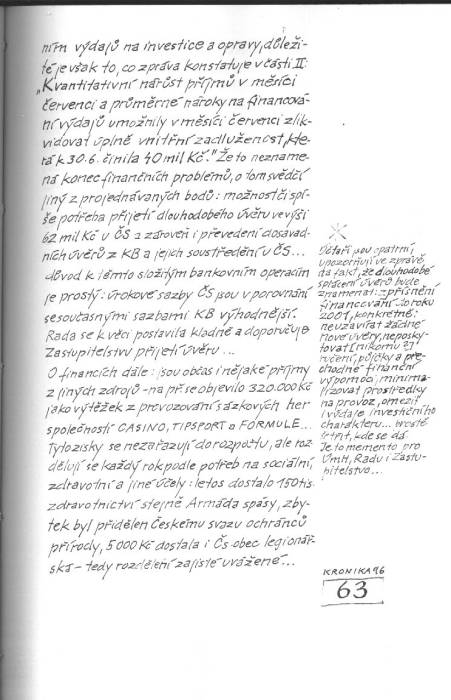 ním výdajů na investice a opravy, důleži-
té je však to, co zpráva konstatuje v části II:
„Kvantitativní nárůst příjmů v měsíci
červenci a průměrné nároky na financová-
ní výdajů umožnily v měsíci červenci zlik-
vidovat úplně vnitřní zadluženost, kte-
rá k 30.6. činila 40 mil Kč." Že to nezname-
ná konec finančních problémů, o tom svědčí
jiný z projednávaných bodů: možnost či spí-
še potřeba přijetí dlouhodobého úvěru ve výši
62 mil Kč u ČS a zároveň i převedení dosavad-
ních úvěrů z KB a jejich soustředění u ČS...
důvod k těmto složitým bankovním operacím
je prostý: úrokové sazby ČS jsou v porovnání
se současnými sazbami KB výhodnější.
Rada se k věci postavila kladně a doporučuje
Zastupitelstvu přijetí úvěru...
O financích dále: jsou občas i nějaké příjmy
z jiných zdrojů - na př se objevilo 320.000 Kč
jako výtěžek z provozování sázkových her
společností CASINO, TIPSPORT a FORMULE...
Tyto zisky se nezařazují do rozpočtu, ale roz-
dělují se každý rok podle potřeb na sociální,
zdravotní a jiné účely: letos dostalo 150 tis
zdravotnictví stejně Armáda spásy, zby-
tek byl přidělen Českému svazu ochránců
přírody, 5 000 Kč dostala i Čs obec legionář-
ská - tedy rozdělení zajisté uvážené...
Účtaři jsou opatrní,
upozorňují ve zprávě
na fakt, že dlouhodobé
splácení úvěrů bude
znamenat: zpřísnění
financování do roku
2001, konkrétně:
neuzavírat žádné
nové úvěry, neposky-
tovat nikomu
ručení, půjčky a pře-
chodné finanční
výpomoci, minima-
lizovat prostředky
na provoz, omezit
i výdaje investičního
charakteru...
šetřit, kde se dá.
Je to memento pro
ÚmM, Radu i Zastu-
pitelstvo...
KRONIKA 96
63